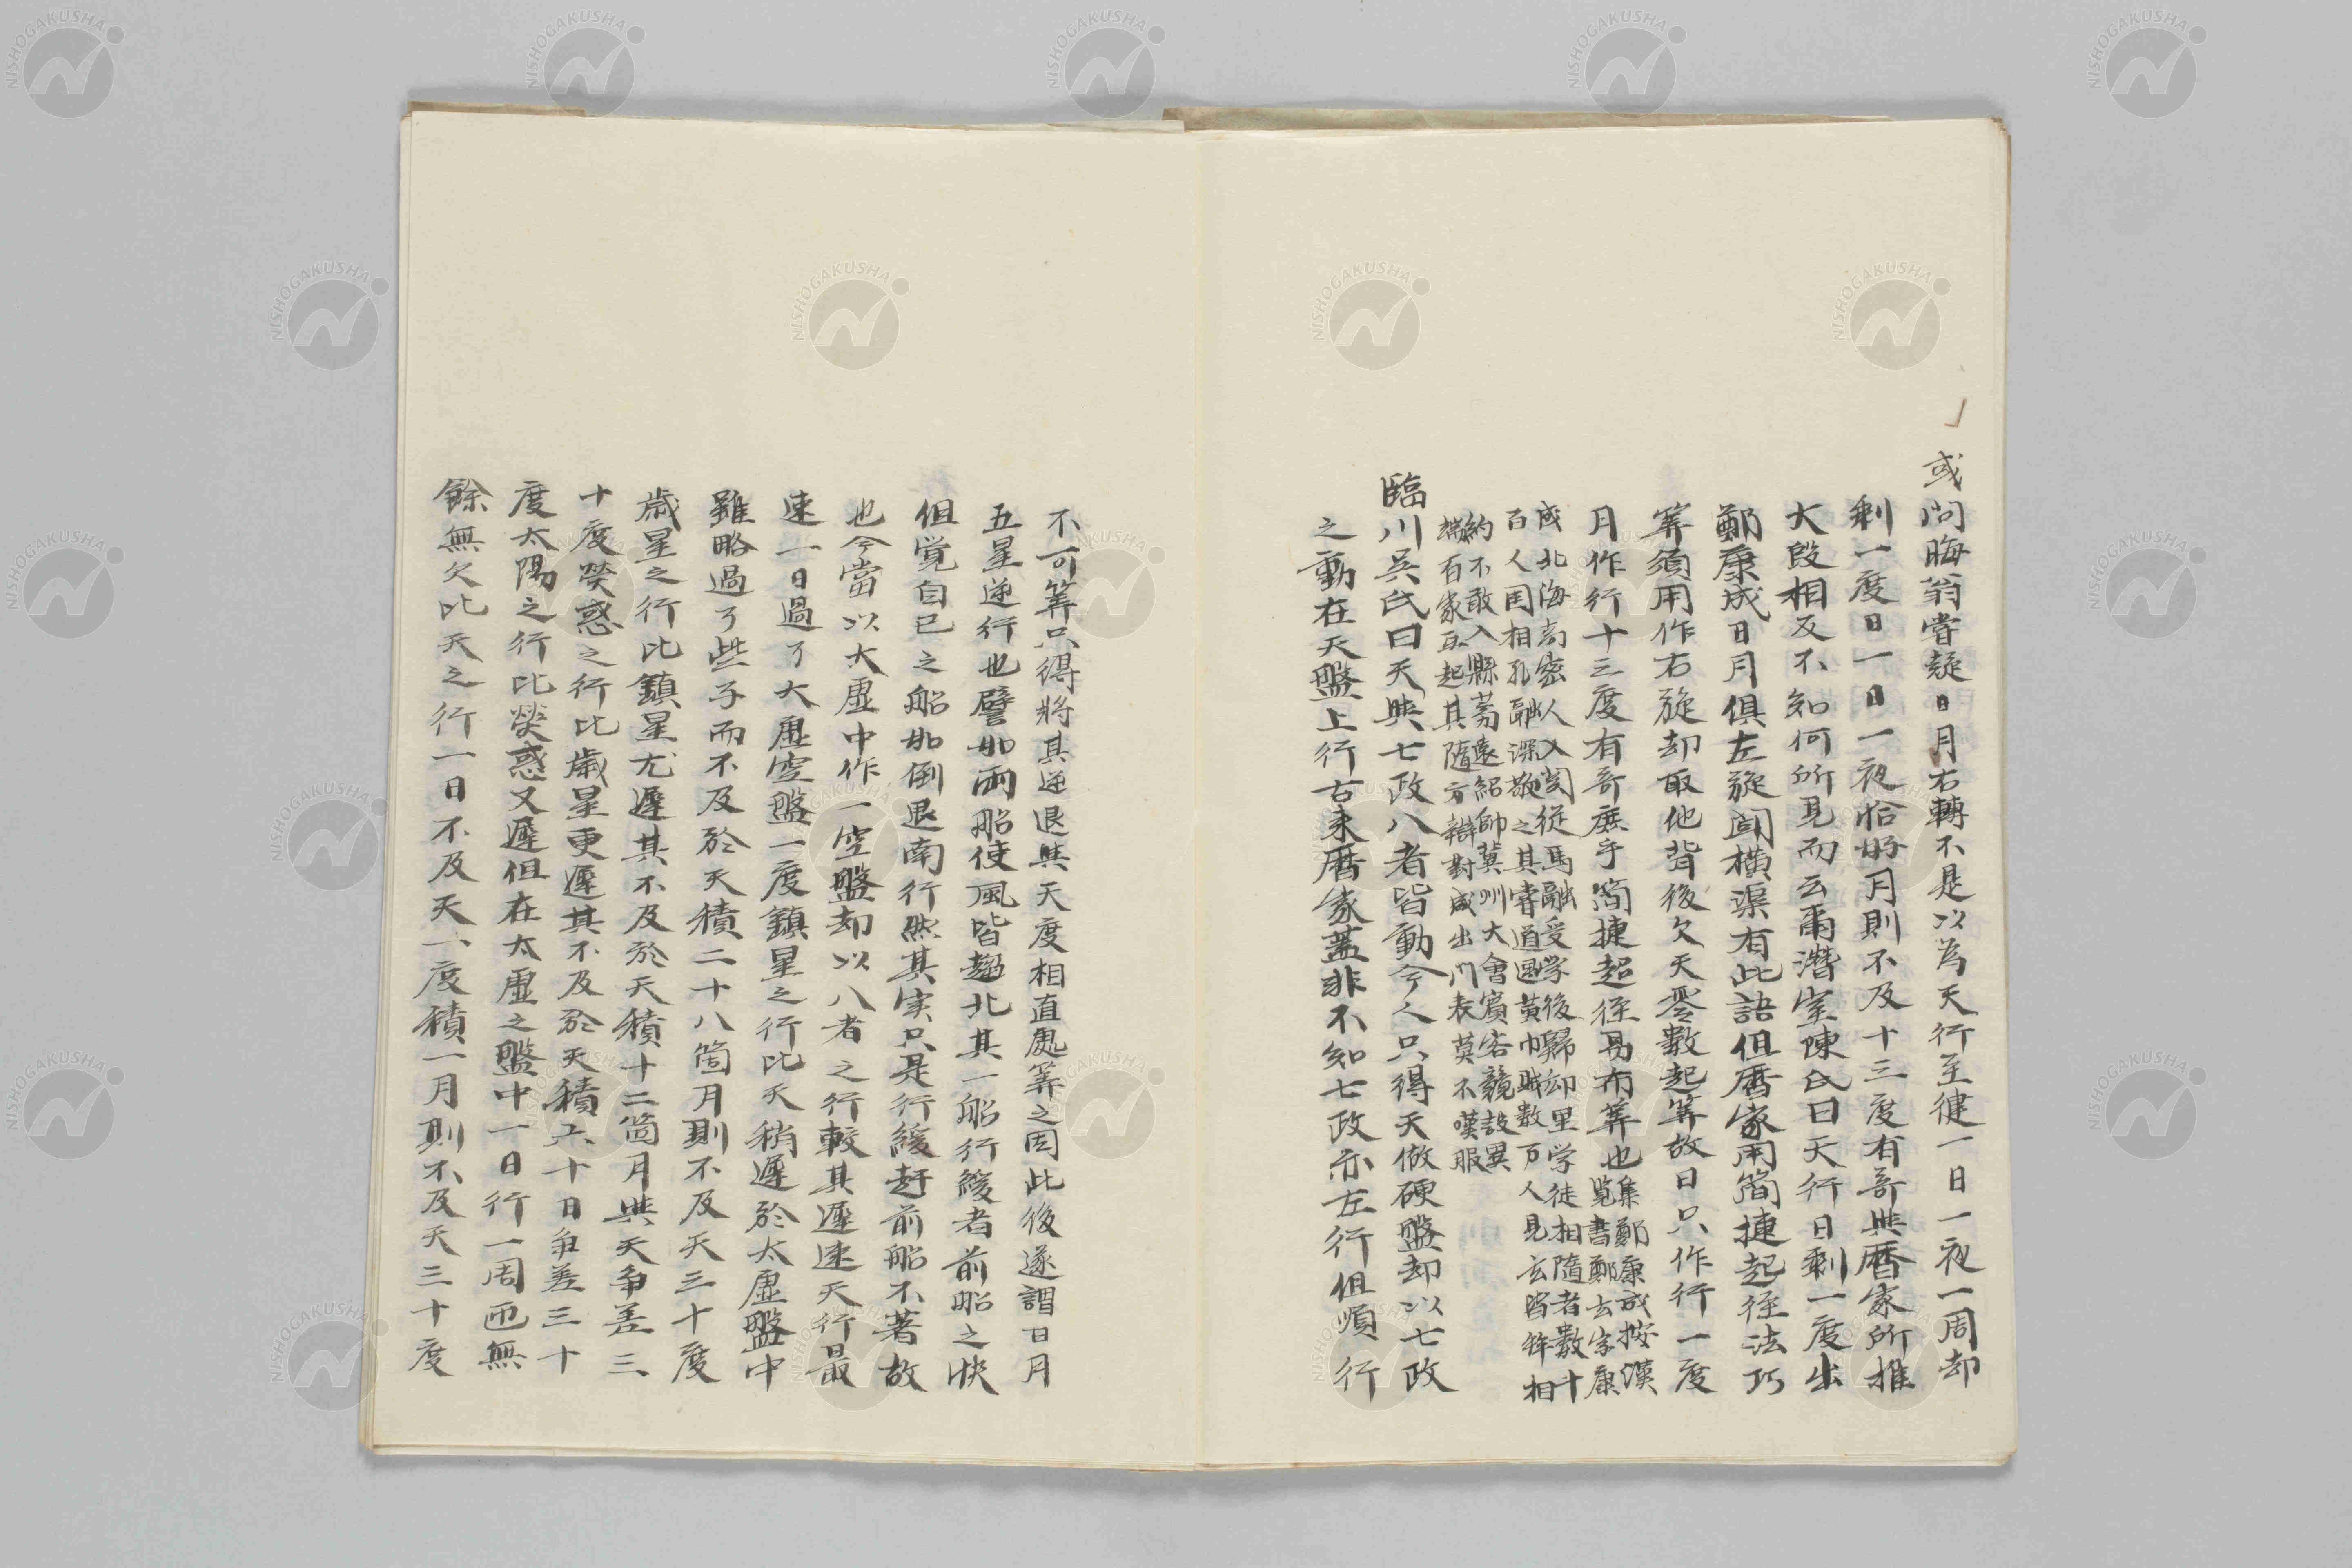 或問晦翁嘗疑日月右轉不是以為天行至健一日一夜一周却
剩一度日一日一夜恰好月則不及十三度有奇與暦家所推
大段相反不知何所見而云爾潛室陳氏曰天行日剩一度出
鄭康成日月俱左旋閒横渠有此語但暦家用簡捷起徑法巧
筭須用作右旋却取他背後欠天零數起筭故日只作行一度
月作行十三度有奇庶乎簡捷超徑易布筭也
集鄭康成按漢
覽書鄭玄字康
成北海高密人入関從馬融受学後歸郷里学徒相隨者數十
百人囯相孔融深敬之其嘗道遇黄巾賊数万人見玄皆拜相
約不敢入縣㫄袁紹帥冀州大會賓客競設異
端百家互起其隨方辯對咸出門表莫不嘆服
臨川呉氏曰天與七政八者皆動今人只得天做硬盤却以七政
之動在天盤上行古来暦家蓋非不知七政亦左行但順行
不可筭只得將其逆退與天度相直處筭之因此後遂謂日月
五星逆行也譬如兩船使風皆趨北其一船行緩者前船之快
但覚自己之船如倒退南行然其実只是行緩赶前船不著故
也今當以大虚中作一空盤却以八者之行較其遲速天行最
速一日過了大虚空盤一度鎮星之行比天稍遲於太虚盤中
雖略過了些子而不及於天積二十八箇月則不及天三十度
歳星之行比鎮星尤遲其不及於天積十二箇月與天争差三
十度熒惑之行比歳星更遲其不及於天積六十日争差三十
度太陽之行比熒惑又遲但在太虚之盤中一日行一周匝無
餘無欠比天之行一日不及天一度積一月則不及天三十度
NISHOGAKUSHA